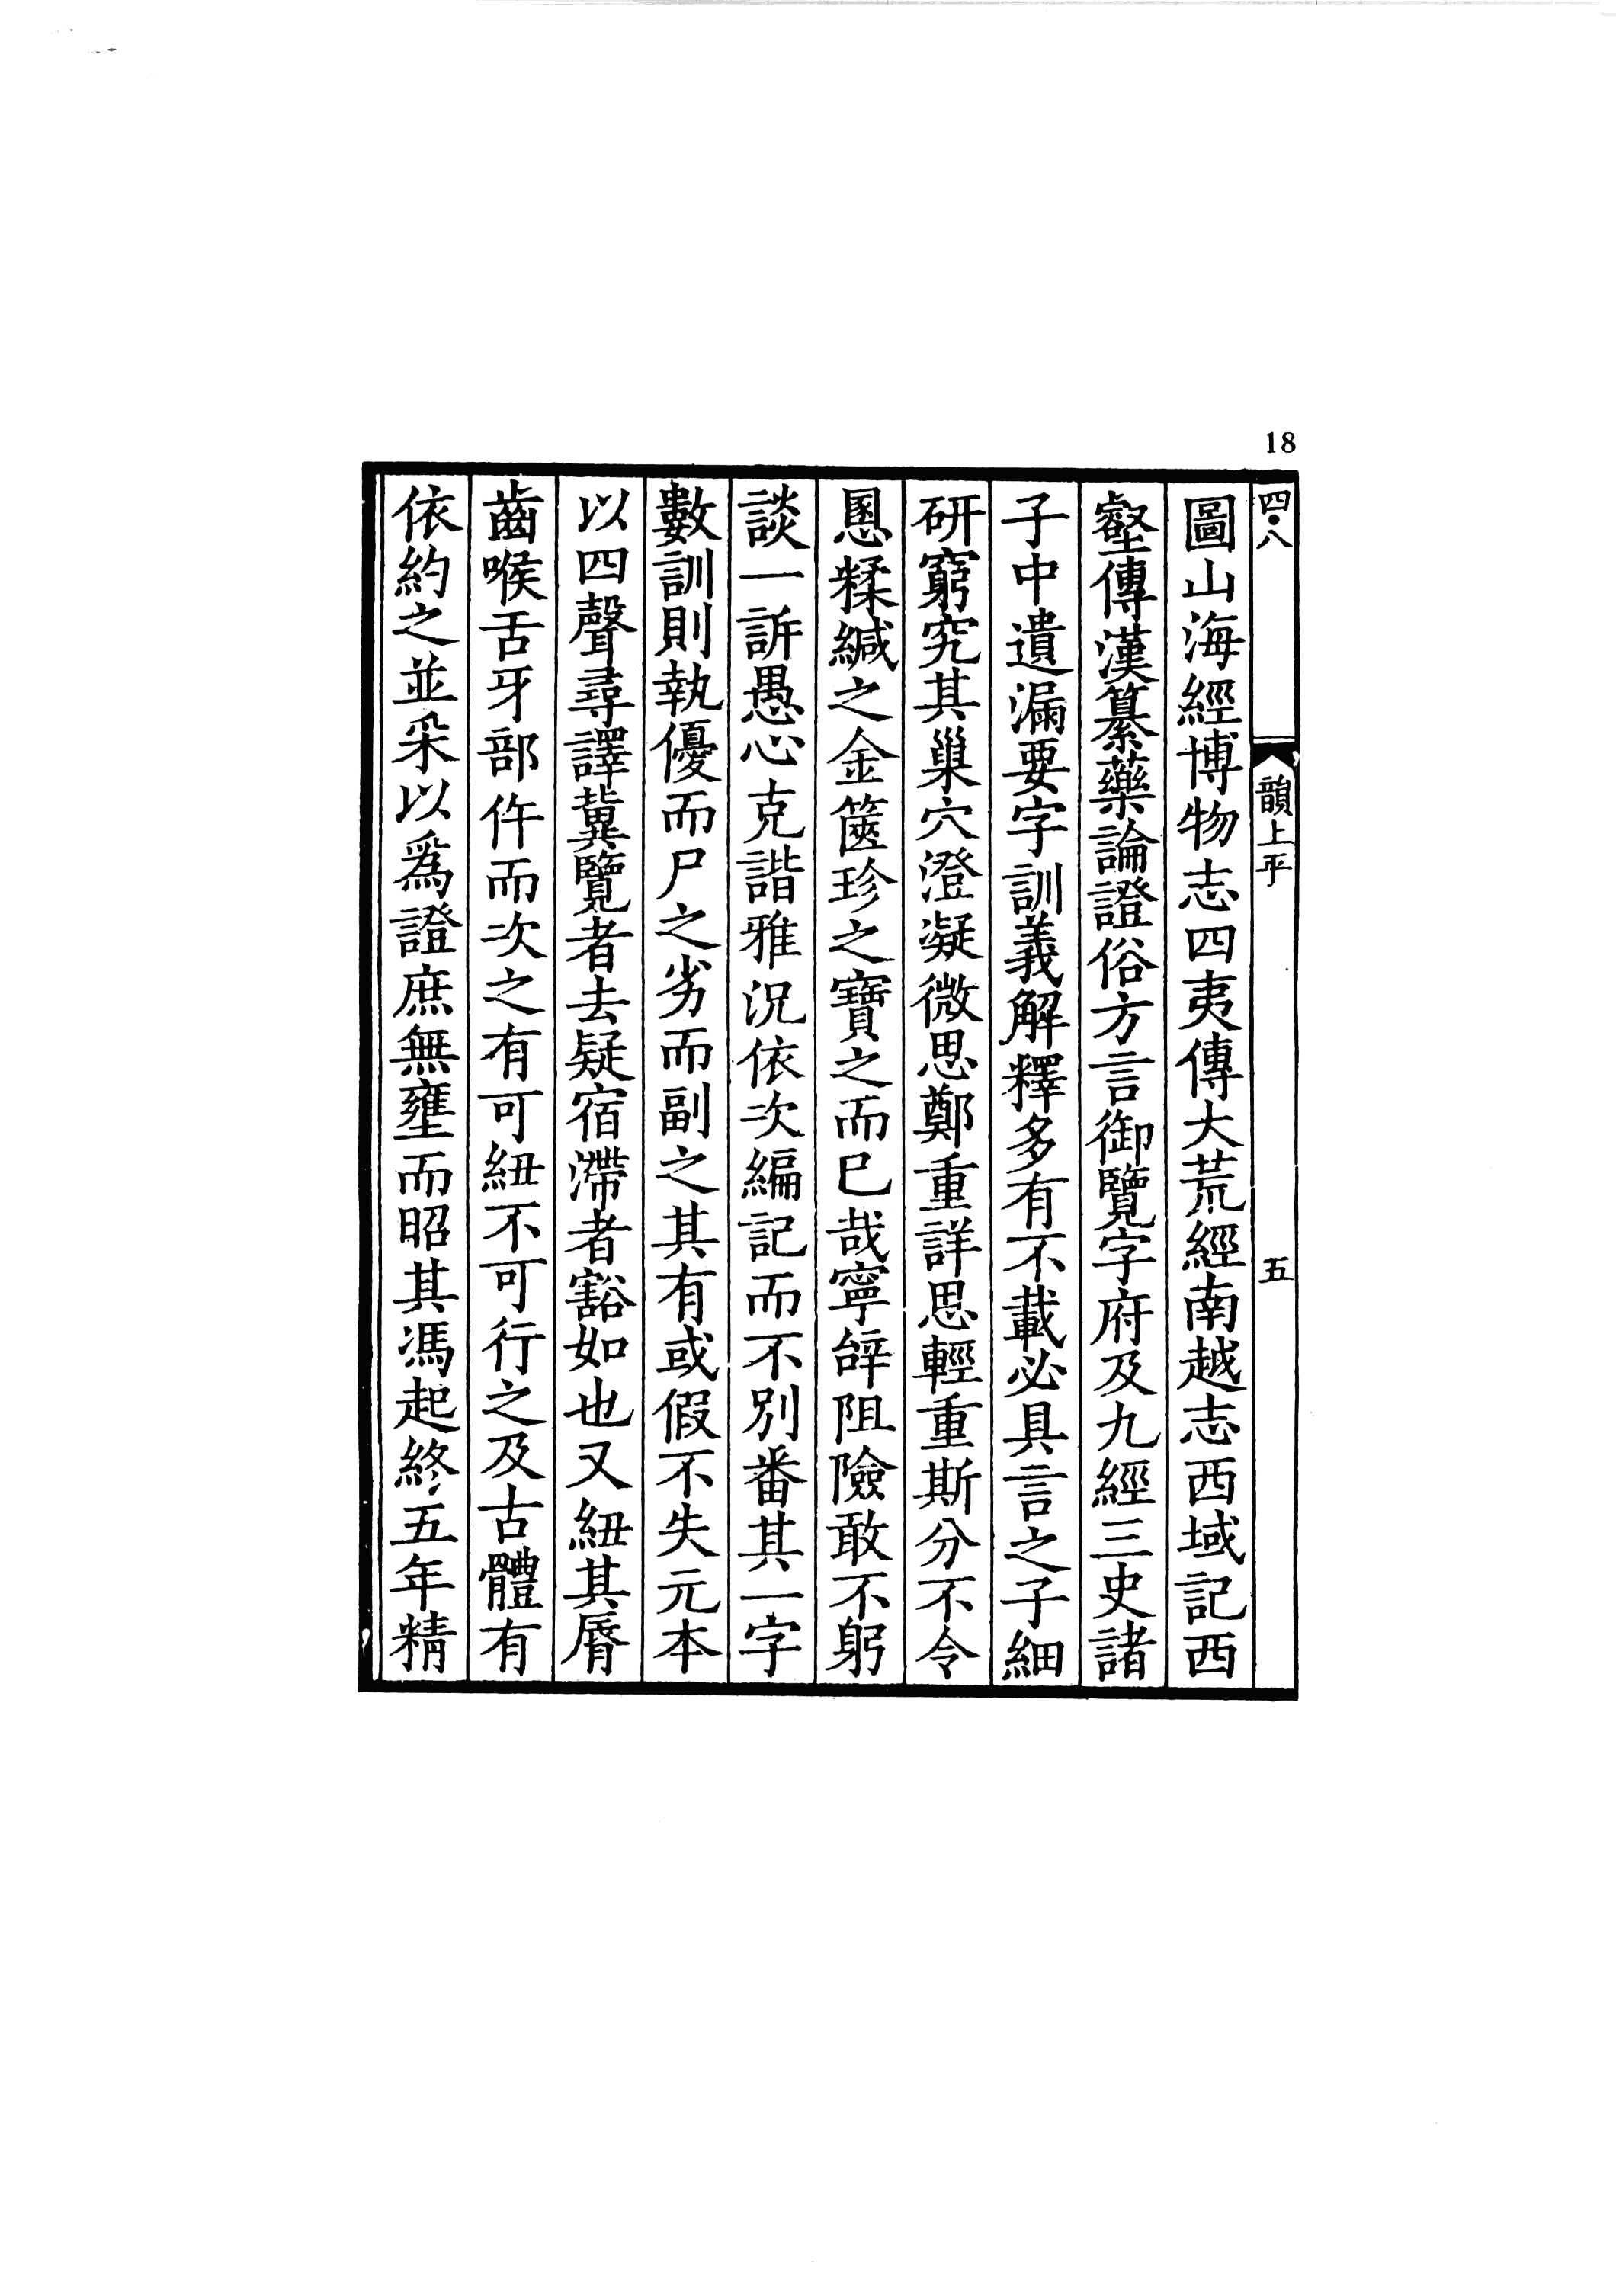 18
四·八
韻上平
五
圖山海經博物志四夷傳大荒經南越志西域記西
壑傳漢纂藥論證俗方言御覽字府及九經三史諸
子中遺漏要字訓義解釋多有不載必具言之子細
研窮究其巢穴澄凝微思鄭重詳思輕重斯分不令
慁糅緘之金篋珍之寶之而已哉寧辤阻險敢不躬
談一訴愚心克諧雅況依次編記而不別番其一字
數訓則執優而尸之劣而副之其有或假不失元本
以四聲尋譯冀覽者去疑宿滯者豁如也又紐其脣
齒喉舌牙部仵而次之有可紐不可行之及古體有
依約之並采以爲證庶無壅而昭其馮起終五年精